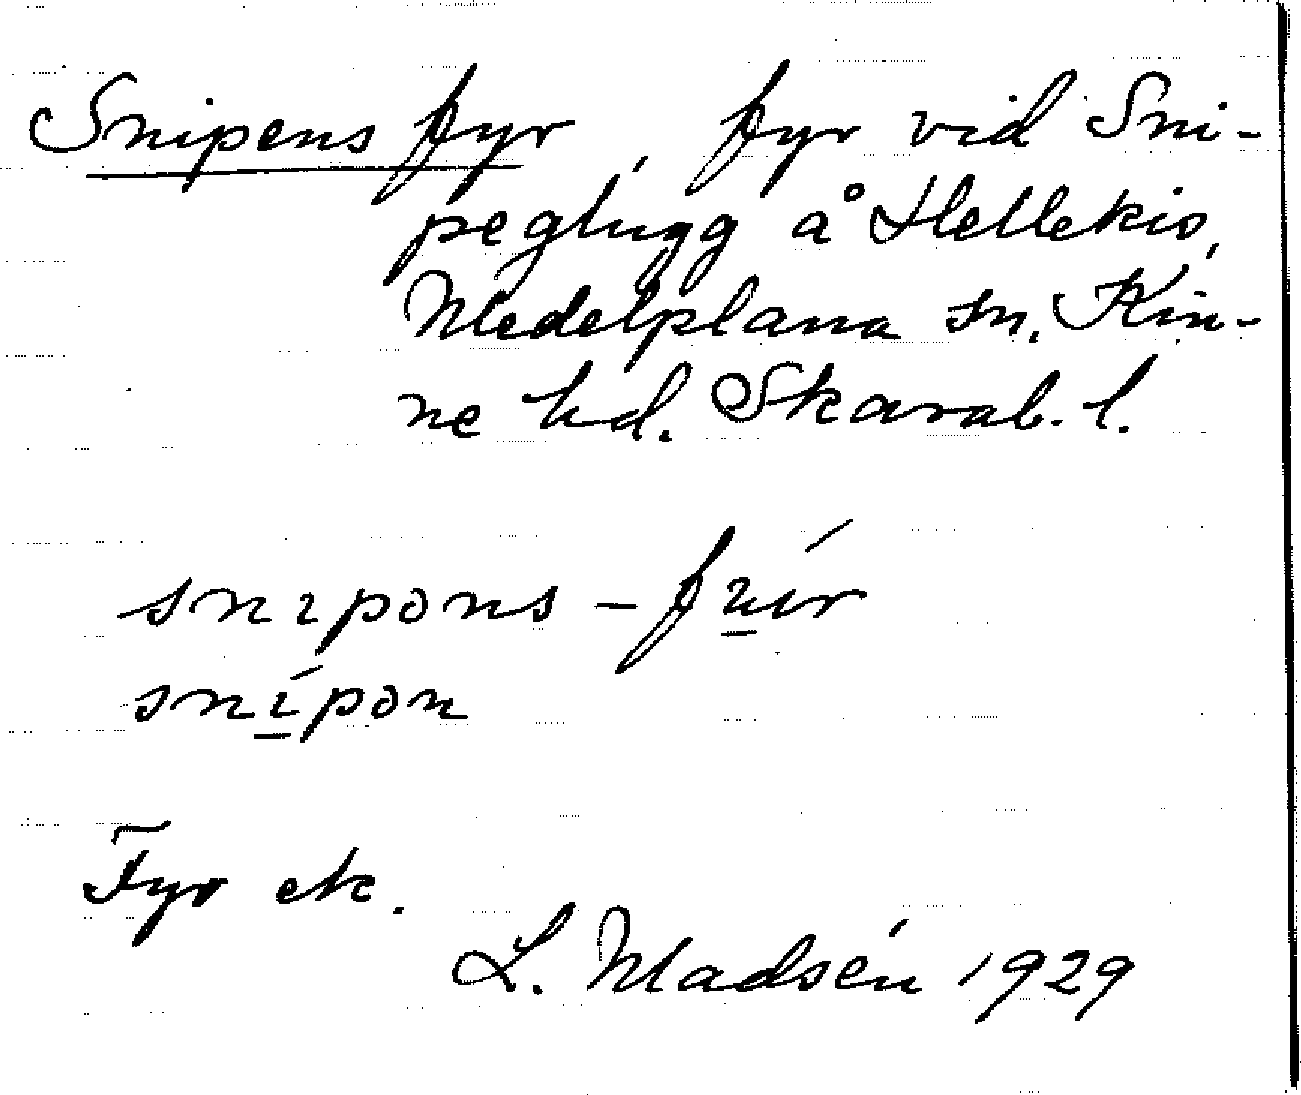 Snipens fyr, fyr vid Sni-
peglugg å Hellekis,
Medelplana sn, Kin-
ne hd. Skarab. l.
snıpəns–fý̲r
snı̲́pən
Fyr etc.
L. Madsén 1929